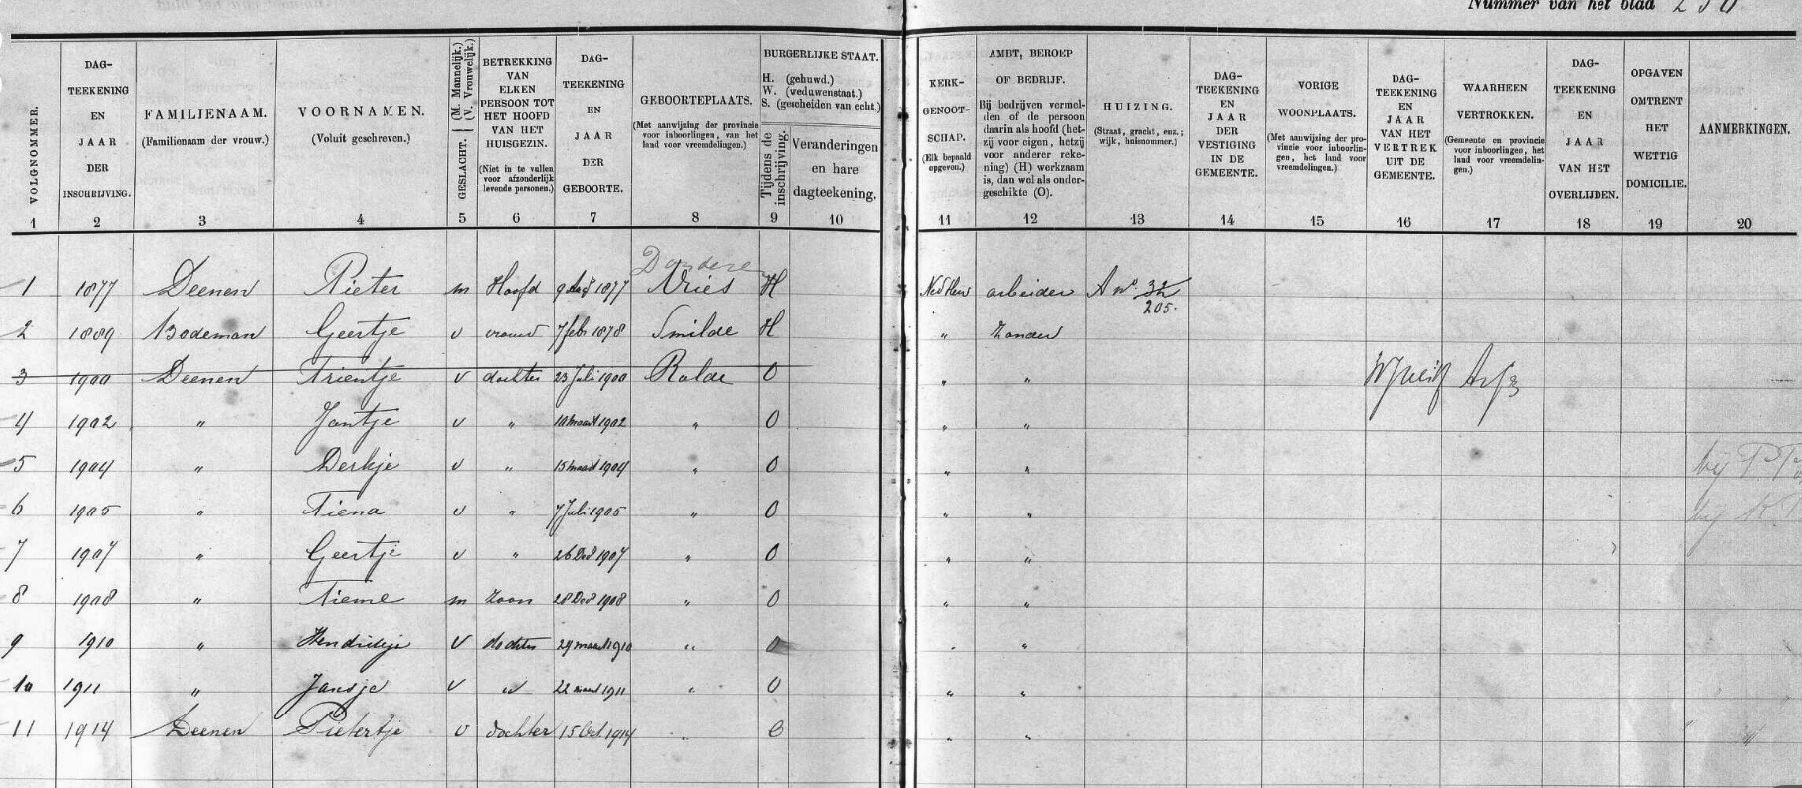 Nummer van het blad
VOLGNOMMER.
1
DAG-
TEEKENING
EN
JAAR
DER
INSCHRIJVING.
2
FAMILIENAAM.
(Familienaam der vrouw.)
3
VOORNAMEN.
(Voluit geschreven.)
4
GESLACHT. (M. Mannelijk.) (V. Vrouwelijk.)
5
BETREKKING
VAN
ELKEN
PERSOON TOT
HET HOOFD
VAN HET
HUISGEZIN.
(Niet in te vullen
voor afzonderlijk
levende personen.)
6
DAG-
TEEKENING
EN
JAAR
DER
GEBOORTE.
7
GEBOORTEPLAATS.
(Met aanwijzing der provincie
voor inboorlingen, van het
land voor vreemdelingen.)
8
BURGERLIJKE STAAT.
H. (gehuwd.)
W. (weduwenstaat.)
S. (gescheiden van echt.)
Tijdens de
inschrijving.
9
Veranderingen
en hare
dagteekening.
10
KERK-
GENOOT-
SCHAP.
(Elk bepaald
opgeven.)
11
AMBT, BEROEP
OF BEDRIJF.
Bij bedrijven vermel-
den of de persoon
daarin als hoofd (het-
zij voor eigen, hetzij
voor anderer reke-
ning) (H) werkzaam
is, dan wel als onder-
geschikte (O).
12
HUIZING.
(Straat, gracht, enz.;
wijk, huisnommer.)
13
DAG-
TEEKENING
EN
JAAR
DER
VESTIGING
IN DE
GEMEENTE.
14
VORIGE
WOONPLAATS.
(Met aanwijzing der pro-
vincie voor inboorlin-
gen, het land voor
vreemdelingen.)
15
DAG-
TEEKENING
EN
JAAR
VAN HET
VERTREK
UIT DE
GEMEENTE.
16
WAARHEEN
VERTROKKEN.
(Gemeente en provincie
voor inboorlingen, het
land voor vreemdelin-
gen.)
17
DAG-
TEEKENING
EN
JAAR
VAN HET
OVERLIJDEN.
18
OPGAVEN
OMTRENT
HET
WETTIG
DOMICILIE.
19
AANMERKINGEN.
20
Donderen
1 1877 Deenen Pieter m Hoofd 9 Aug 1877 Vries H Ned Herv arbeider A no. 32
205.
2 1889 Bodeman Geertje v vrouw 7 febr 1878 Smilde H " Zonder
3 1900 Deenen Trientje v dochter 23 Juli 1900 Rolde O " "
4 1902 " Jantje v " 10 maart 1902 " O " "
5 1904 " Derkje v " 15 maart 1904 " O " "
6 1905 " Tiena v " 7 Juli 1905 " O " "
7 1907 " Geertje v " 26 Dec 1907 " O " "
8 1908 " Tieme m Zoon 28 Dec 1908 " O " "
9 1910 " Hendrikje v dochter 29 maart 1910 " O " "
10 1911 " Jansje v " 22 maart 1911 " O " "
11 1914 Deenen Pietertje v dochter 15 Oct 1914 " O " "